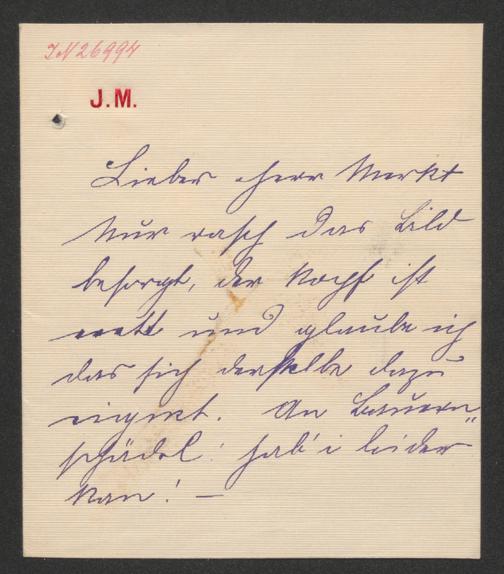 IN 26994
J.M.
Lieber Herr Merkt
Nur rasch das Bild
besorgt, der Kopf ist
nett und glaube ich
das sich derselbe dazu
eignet. An Bauern
schädel! hab' i leider
kan! —